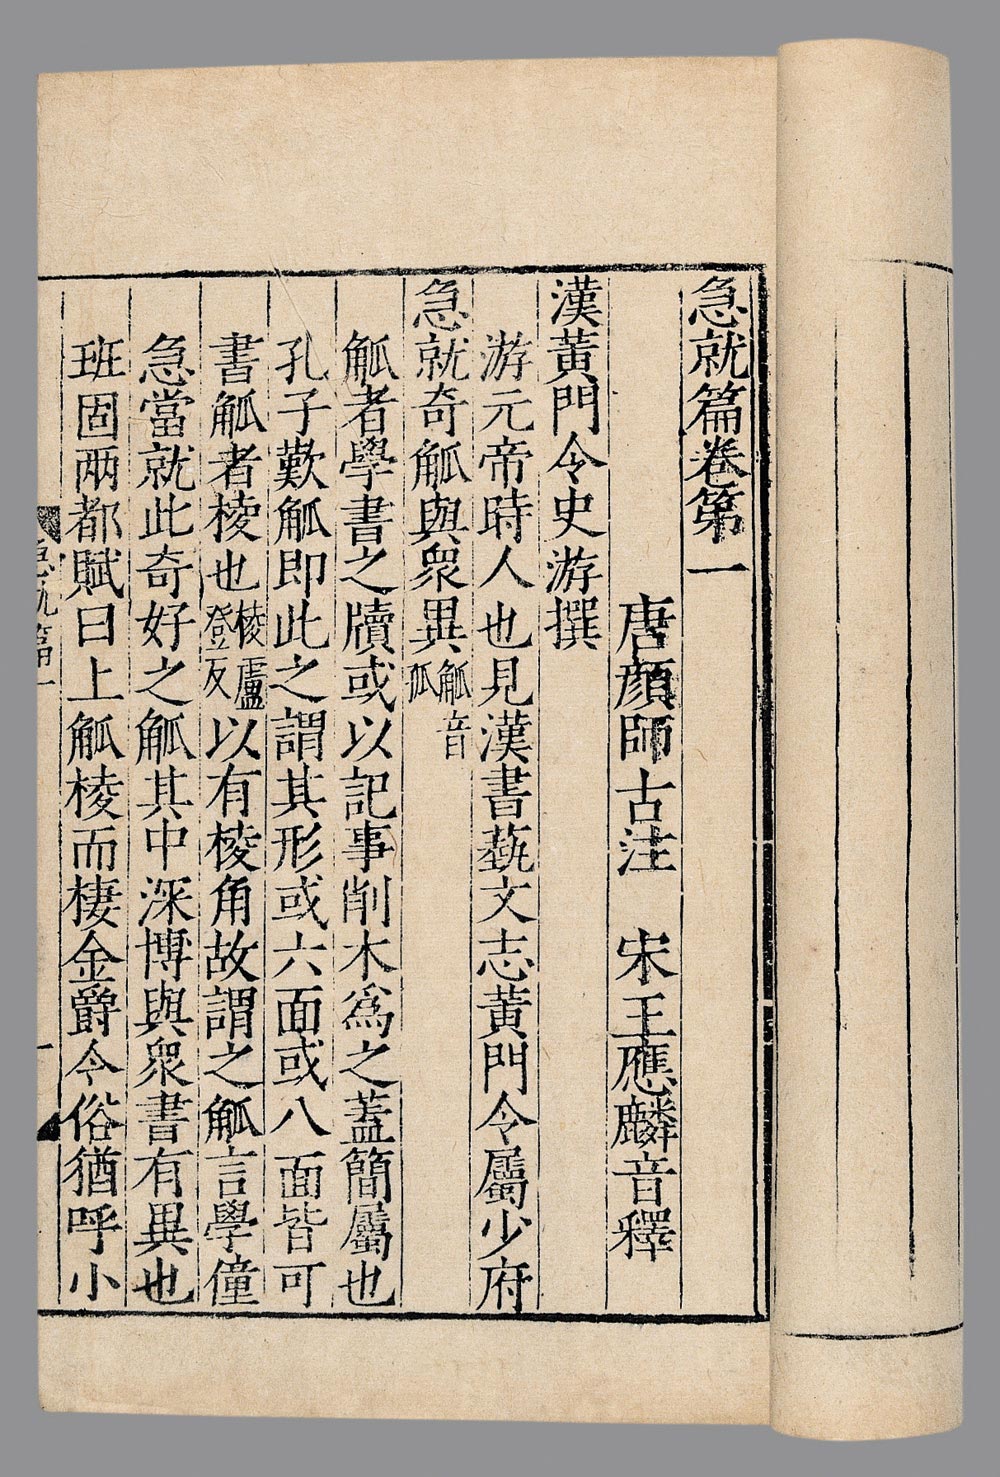 急就篇卷第一
唐顔師古注　宋王應麟音釋
漢黃門令史游撰
游元帝時人也見漢書蓺文志黃門令屬少府
急就奇觚與衆異觚音孤
觚者學書之牘或以記事削木爲之蓋簡屬也
孔子歎觚即此之謂其形或六面或八面皆可
書觚者棱也棱盧登反以有棱角故謂之觚言學僮
急當就此奇好之觚其中深博與衆書有異也
班固兩都賦曰上觚棱而棲金爵今俗猶呼小
急就篇一
一